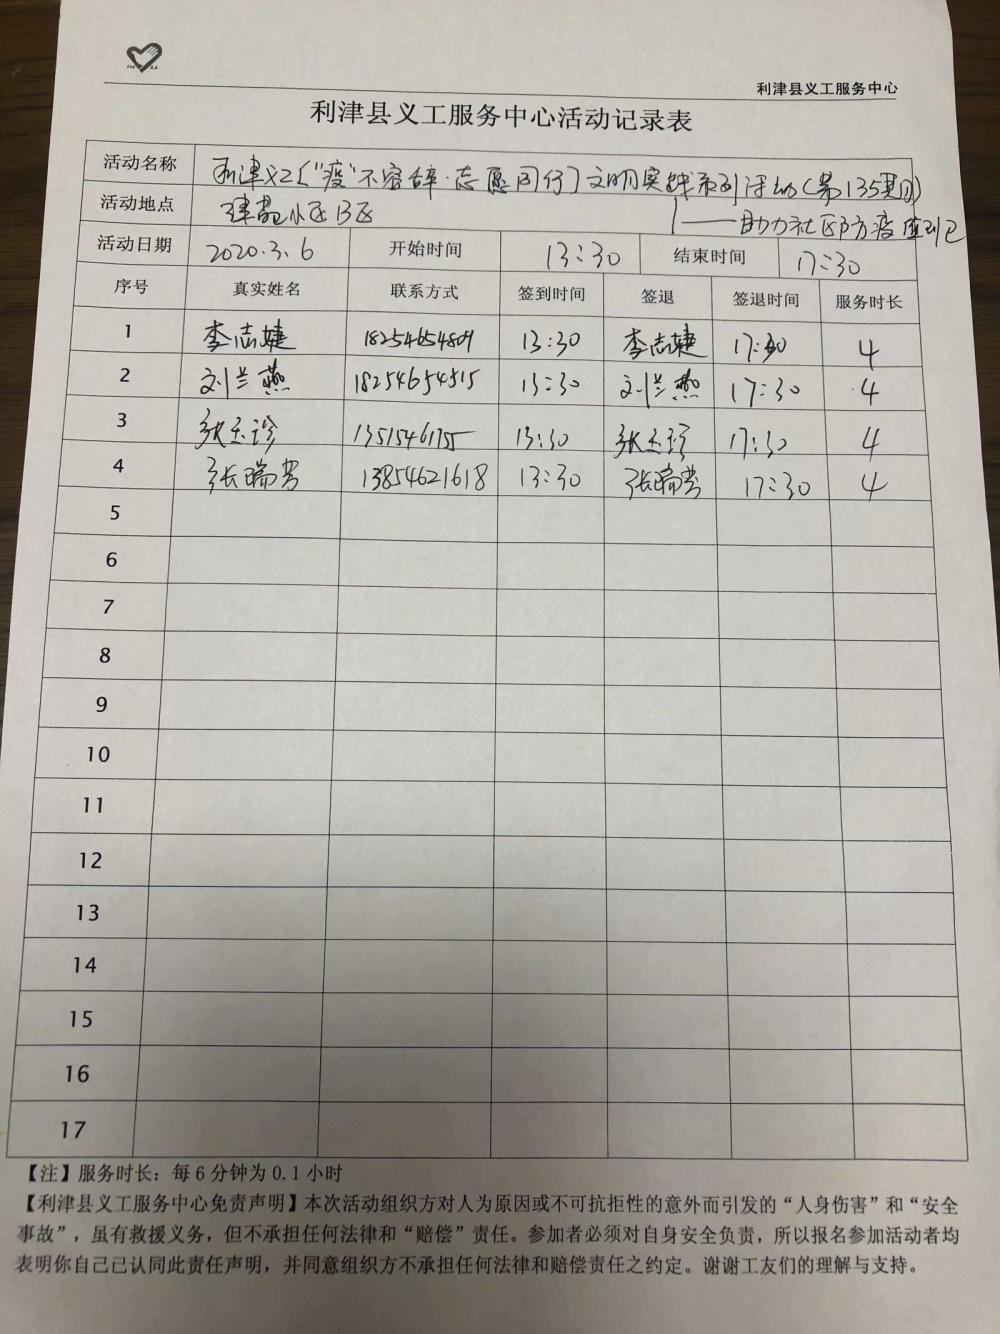 利津县义工服务中心
利津县义工服务中心活动记录表
活动名称 利津义工〔“疫”不容辞·志愿同行〕文明实践系列活动(第135期)
——助力社区防疫
活动地点 津苑小区B区
活动日期 2020.3.6 开始时间 13:30 结束时间 17:30
序号 真实姓名 联系方式 签到时间 签退 签退时间 服务时长
1 李志婕 18254654809 13:30 李志婕 17:30 4
2 刘兰燕 18254654515 13:30 刘兰燕 17:30 4
3 张玉珍 13515461755 13:30 张玉珍 17:30 4
4 张瑞芳 13854621618 13:30 张瑞芳 17:30 4
5
6
7
8
9
10
11
12
13
14
15
16
17
【注】服务时长：每6分钟为0.1小时
【利津县义工服务中心免责声明】本次活动组织方对人为原因或不可抗拒性的意外而引发的“人身伤害”和“安全
事故”，虽有救援义务，但不承担任何法律和“赔偿”责任。参加者必须对自身安全负责，所以报名参加活动者均
表明你自己已认同此责任声明，并同意组织方不承担任何法律和赔偿责任之约定。谢谢工友们的理解与支持。